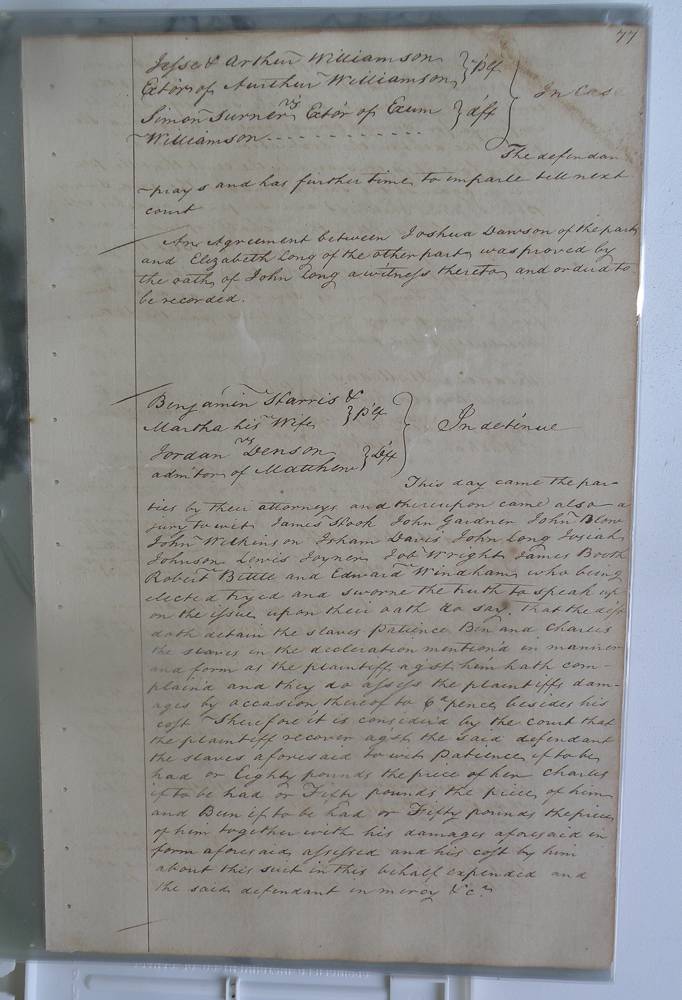 77
Jesse & Arthur Williamson } plt
Extors of Aurthur Williamson } In Case
vs
Simon Turner Extor of Exum } dft
Williamson
The defendan
prays and has further time to imparle till next
court
An Agreement between Joshua Dawson of the part
and Elizabeth Long of the other part was proved by
the oath of John Long a witness thereto and ordud to
be recorded.
Benjamin Harris &
Martha his Wife } plt In detinue
vs
Jordan Denson } Dft
admitor of Matthew
This day came the par-
ties by their attorneys and thereupon came also a
jury to wit James Hook John Gardner John Blow
John Wilkinson Irham Davis John Long Josiah
Johnson Lewis Joyner Job Wright James Booth
Robert Bittle and Edward Windham who being
elected tryed and sworne the truth to speak up
on the issue upon their oath do say. That the deft
doth detain the slaves Patience Ben and Charles
the slaves in the decleration mention'd in manner
and form as the plaintiff agst him hath com-
plain'd and they do assess the plaintiffs dam-
ages by occasion thereof to 6d pence besides his
cost Therefore it is consider'd by the court that
the plaintiff recover agst the said defendant
the slaves aforesaid to wit Patience if to be
had or Eighty pounds the price of her Charles
if to be had or Fifty pounds the price of him
and Ben if to be had or Fifty pounds the price
of him together with his damages aforesaid in
form aforesaid assessed and his cost by him
about this suit in this behalf expended and
the said defendant in mercy &c.